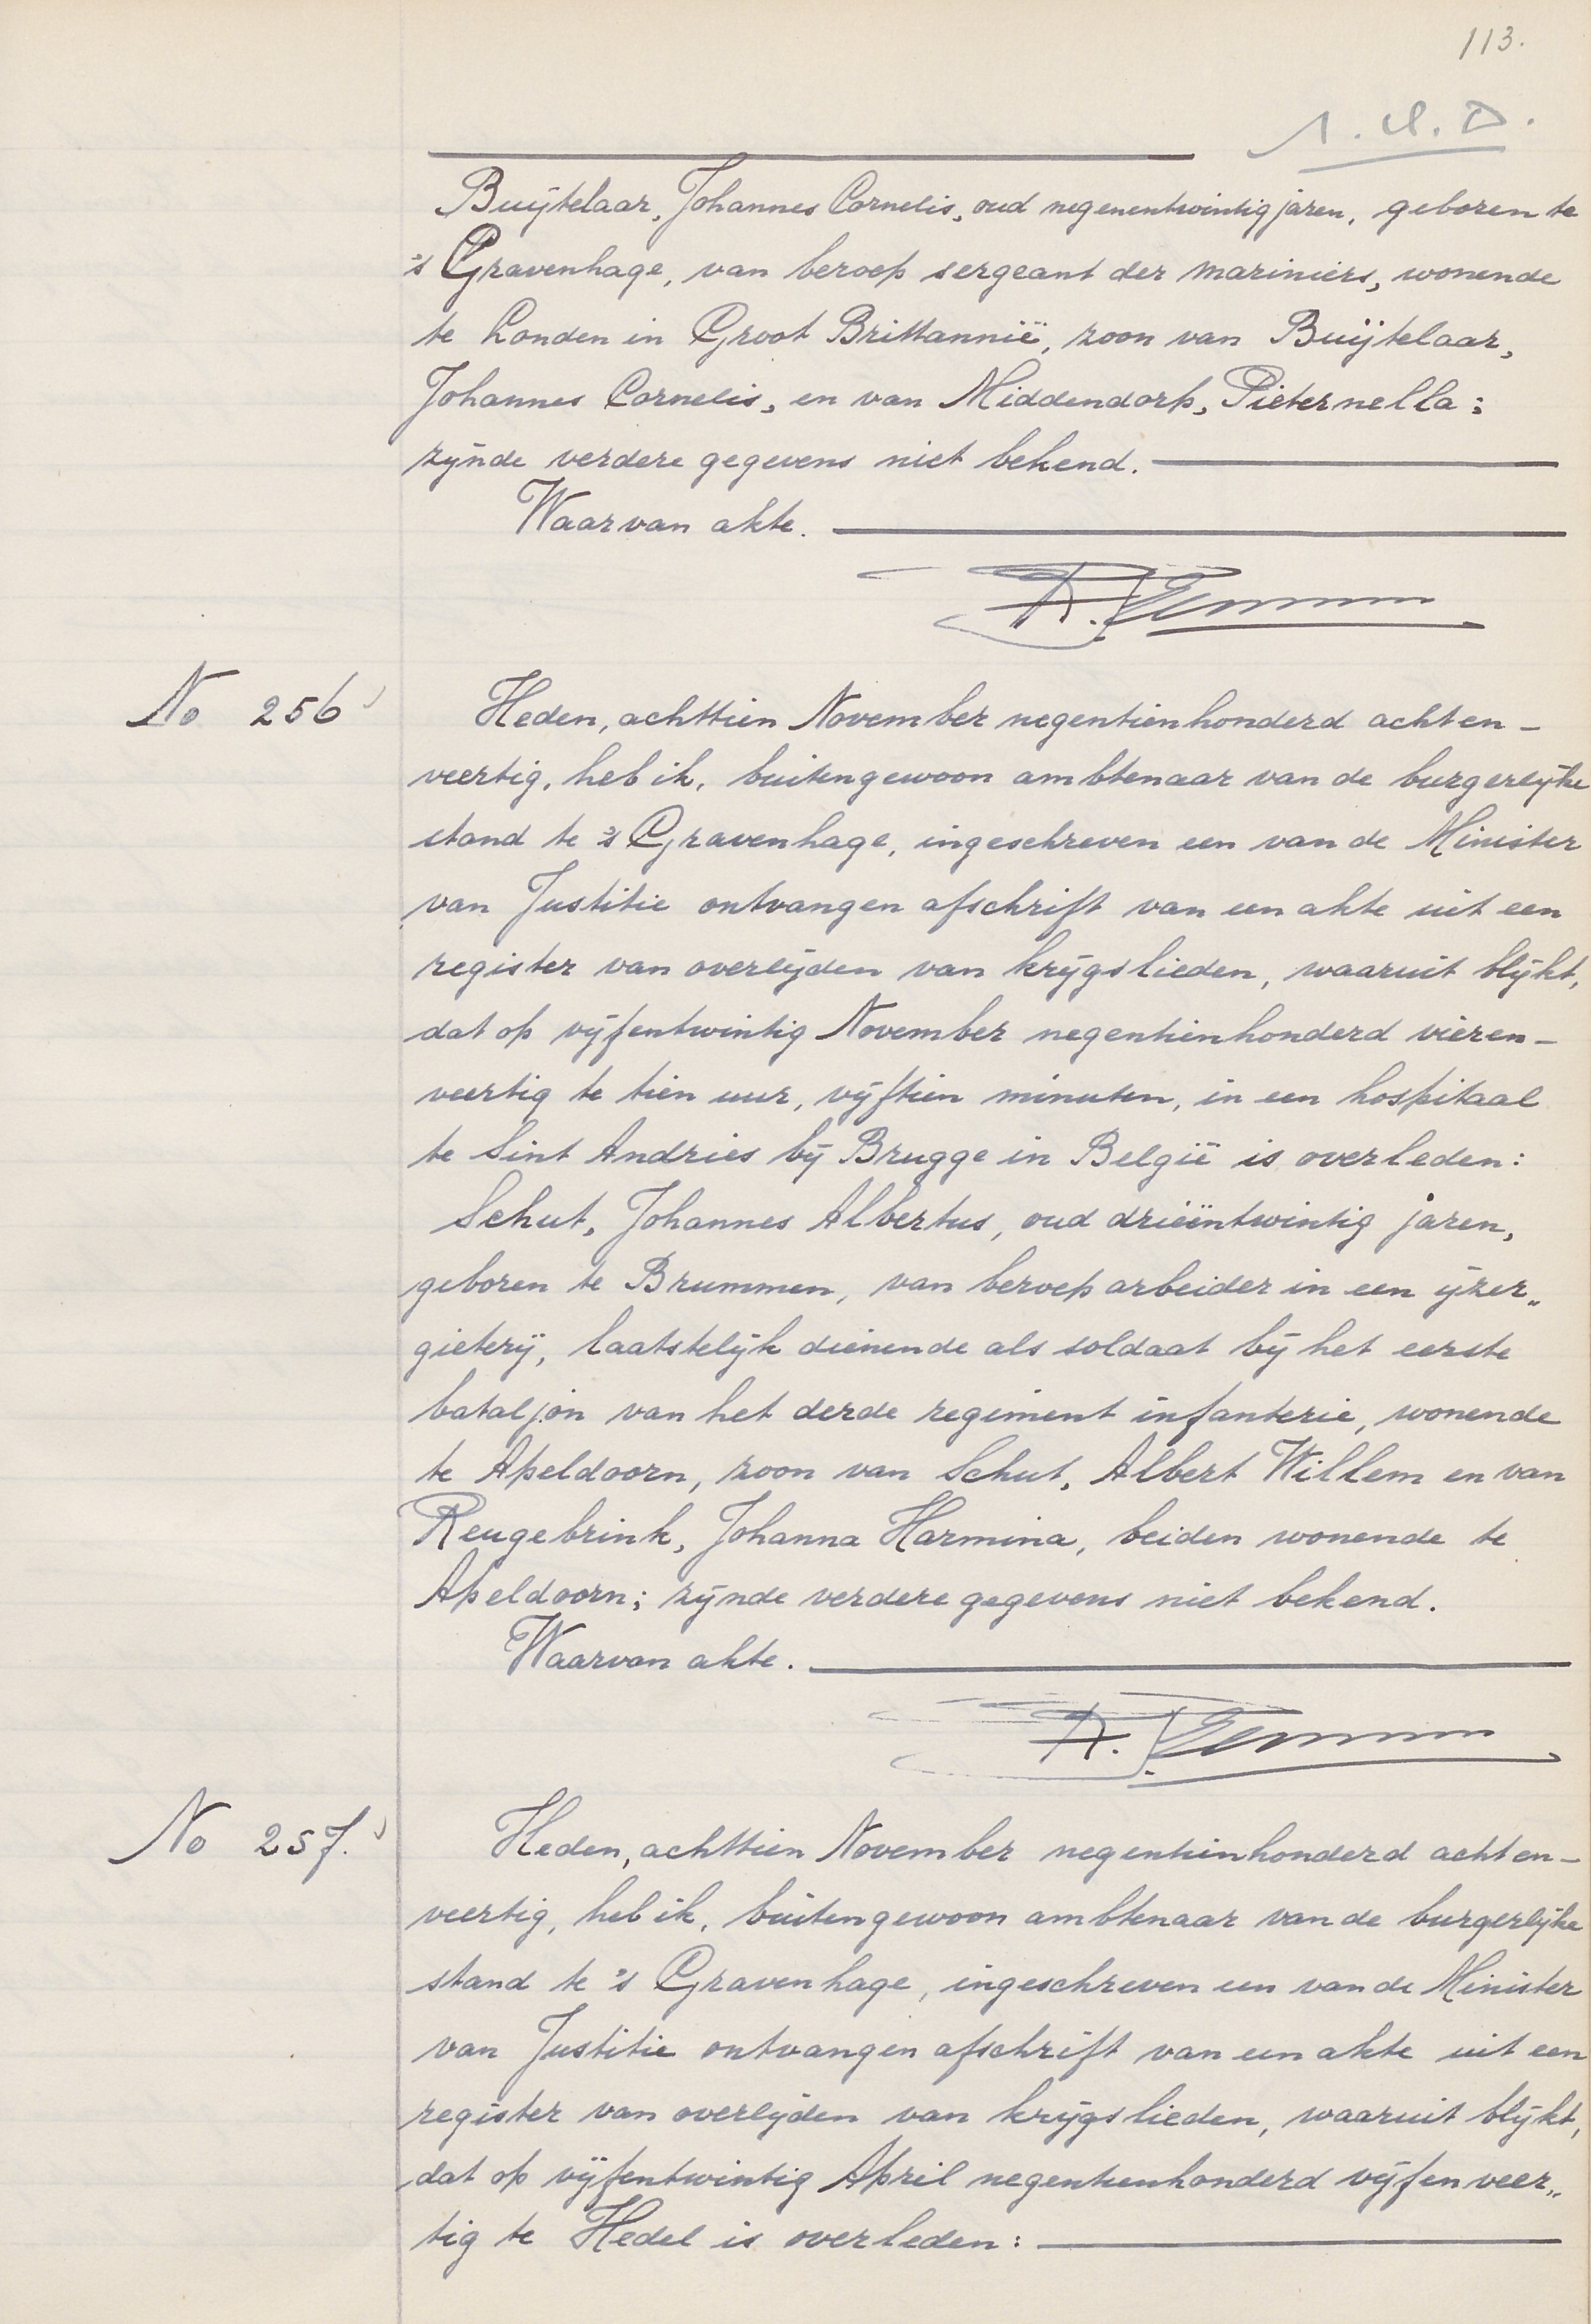 113.
Buijtelaar, Johannes Cornelis, oud negenentwintig jaren, geboren te
's Gravenhage, van beroep sergeant der mariniers, wonende
te Londen in Groot Brittannië, zoon van Buijtelaar,
Johannes Cornelis, en van Middendorp, Pieternella;
zijnde verdere gegevens niet bekend.
Waarvan akte.
No 256
Heden, achttien November negentienhonderd achten-
veertig, heb ik, buitengewoon ambtenaar van de burgerlijke
stand te 's Gravenhage, ingeschreven een van de Minister
van Justitie ontvangen afschrift van een akte uit een
register van overlijden van krijgslieden, waaruit blijkt,
dat op vijfentwintig November negentienhonderd vieren-
veertig te tien uur, vijftien minuten, in een hospitaal
te Sint Andries bij Brugge in België is overleden:
Schut, Johannes Albertus, oud drieëntwintig jaren,
geboren te Brummen, van beroep arbeider in een ijzer„
gieterij, laatstelijk dienende als soldaat bij het eerste
bataljon van het derde regiment infanterie, wonende
te Apeldoorn, zoon van Schut, Albert Willem en van
Reugebrink, Johanna Harmina, beiden wonende te
Apeldoorn; zijnde verdere gegevens niet bekend.
Waarvan akte.
No 257.
Heden, achttien November negentienhonderd achten-
veertig, heb ik, buitengewoon ambtenaar van de burgerlijke
stand te 's Gravenhage, ingeschreven een van de Minister
van Justitie ontvangen afschrift van een akte uit een
register van overlijden van krijgslieden, waaruit blijkt,
dat op vijfentwintig April negentienhonderd vijfenveer„
tig te Hedel is overleden: